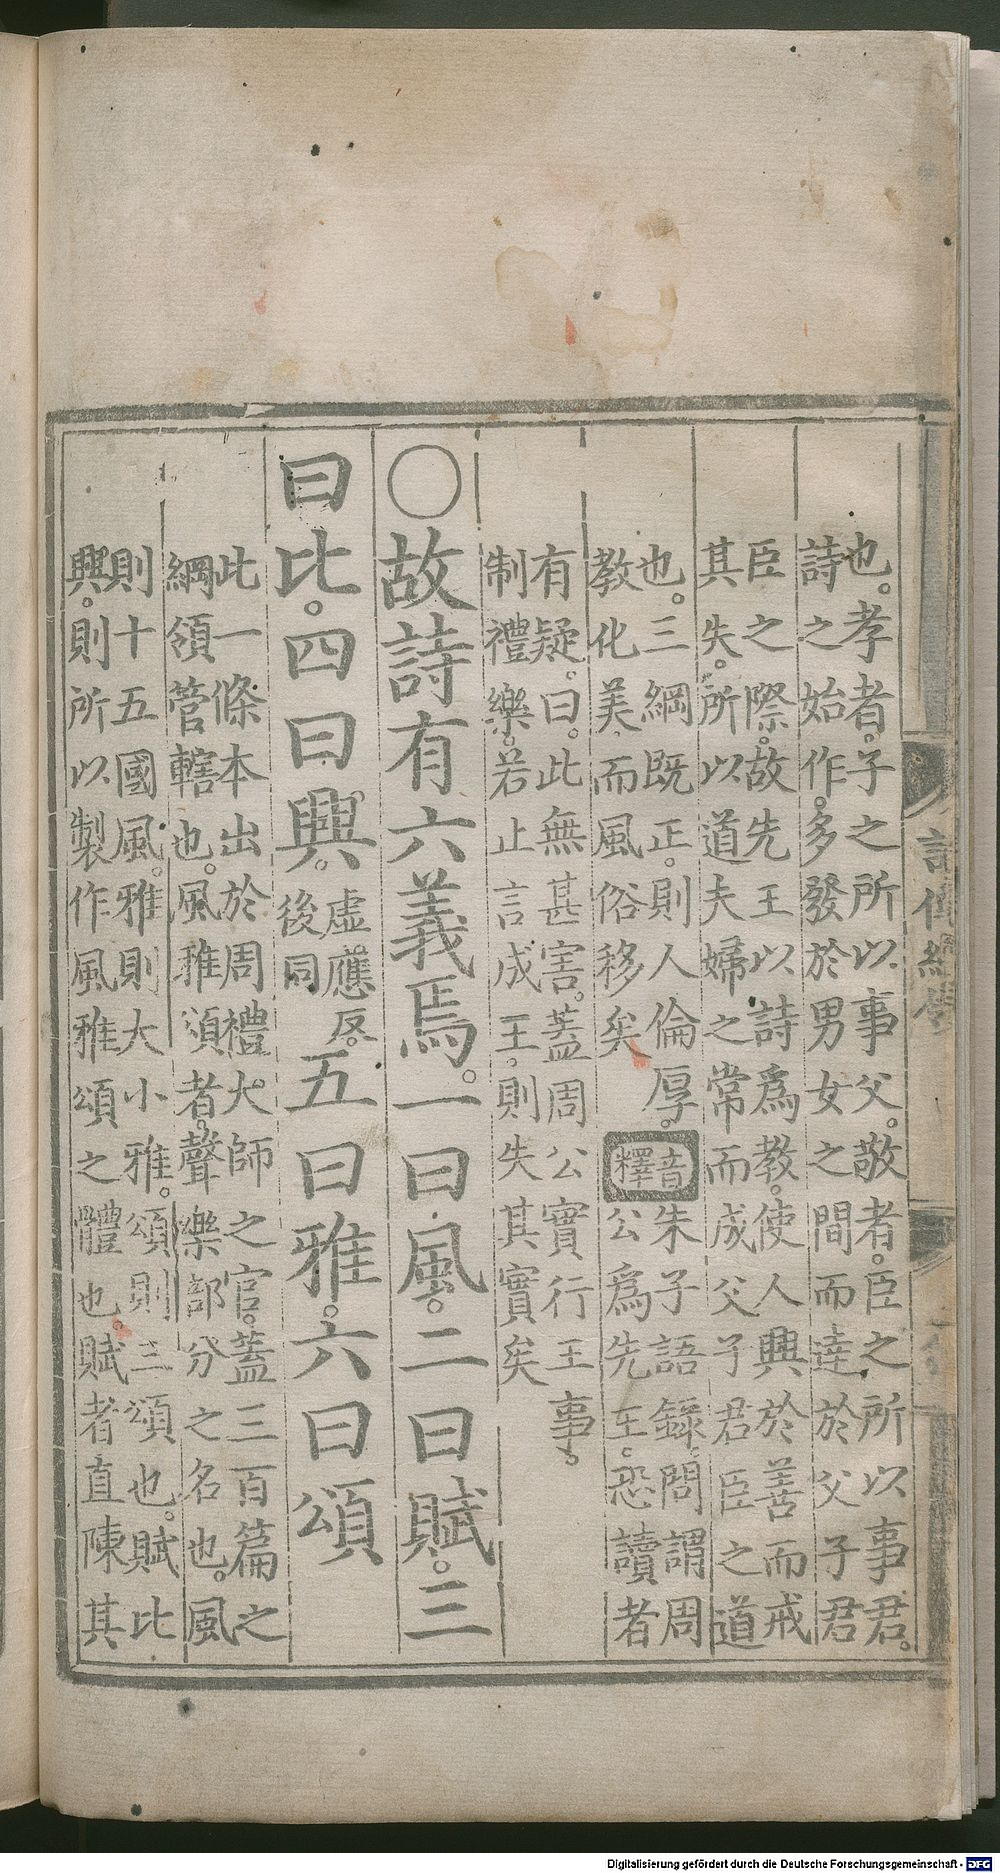 也。孝者。子之所以事父。敬者。臣之所以事君。
詩之始作。多發於男女之間而達於父子君
臣之際。故先王以詩爲教。使人興於善而戒
其失。所以道夫婦之常而成父子君臣之道
也。三綱既正。則人倫厚。
教化美而風俗移矣
音釋
朱子語錄。問謂周
公爲先王。恐讀者
有疑。曰。此無甚害。蓋周公實行王事。
制禮樂。若止言成王。則失其實矣
○故詩有六義焉。一曰風。二曰賦。三
曰比。四曰興。
虛應反。
後同
五曰雅。六曰頌
此一條本出於周禮大師之官。蓋三百篇之
綱領管轄也。風雅頌者。聲樂部分之名也。風
則十五國風。雅則大小雅。頌則三頌也。賦比
興。則所以製作風雅頌之體也。賦者直陳其
Digitalisierung gefördert durch die Deutsche Forschungsgemeinschaft - DFG